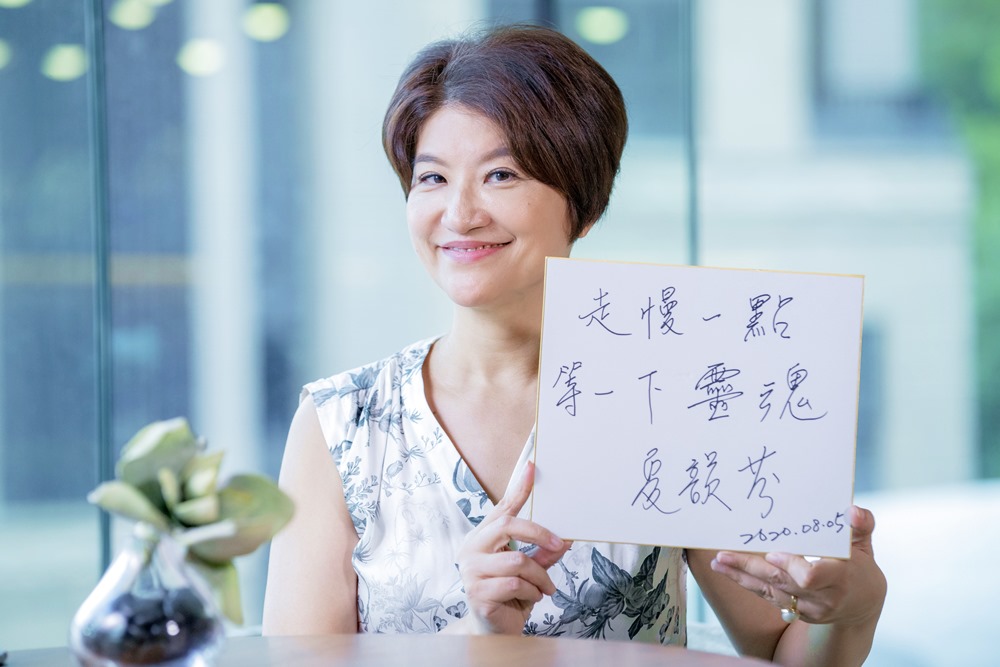 走慢一點
等一下靈魂
夏韻芬
2020.08.05